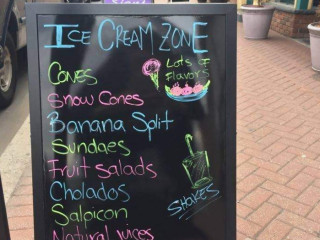 ICE CREAM ZONE
CONES
LOTS OF
FLAVORS
SNOW CONES
BANANA SPLIT
SUNDAES
FRUIT SALADS
CHOLADOS
SALPICON
SHAKES
NATURAL JUICES